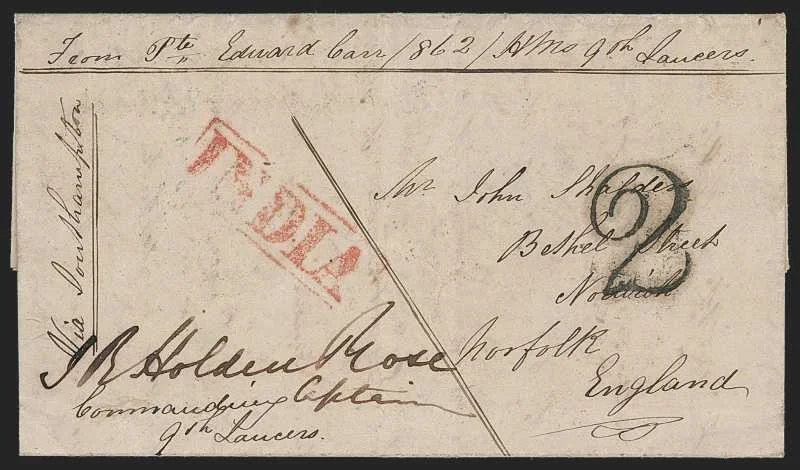 From Pte Edward Carr /862/ HMs 9th Lancers.
Via Southampton
INDIA
Mr John Shalders
Bethel Street
2
Norwich
Norfolk
England
J R Holden Rose
Commanding Captain
9th Lancers.